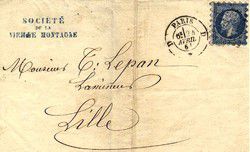 SOCIÉTÉ
DE LA
VIEILLE MONTAGNE
PARIS
AVRIL
D D
Monsieur T. Lepan
Lamineur
Lille